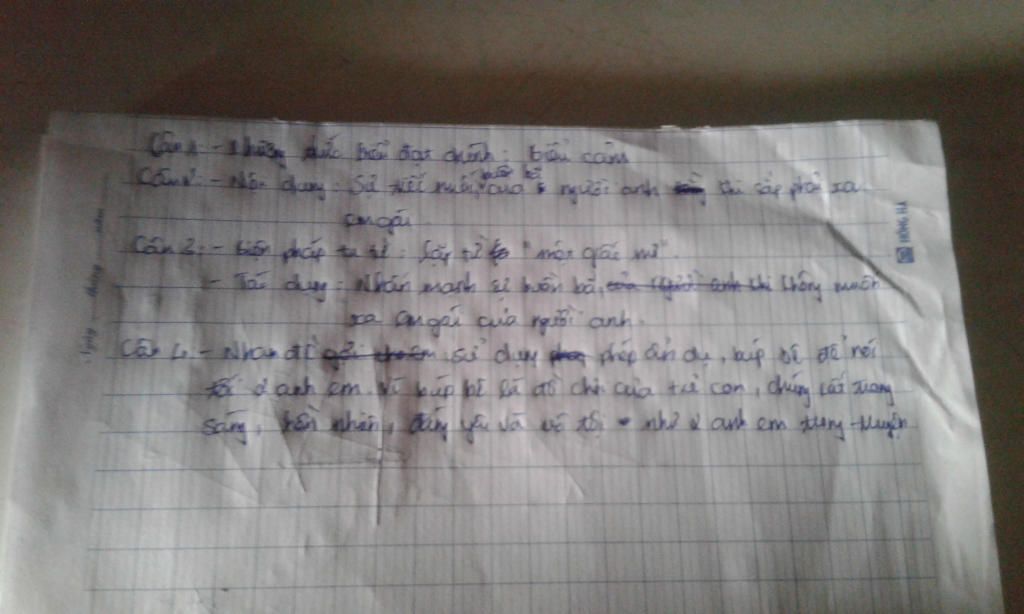 Câu 1: - Phương thức biểu đạt chính: biểu cảm
Câu 2: - Nội dung: Sự tiếc nuối, buồn bã của người anh khi sắp phải xa
em gái.
Câu 3: - Biện pháp tu từ: Lặp từ "một giấc mơ".
- Tác dụng: Nhấn mạnh sự buồn bã, của người anh khi không muốn
xa em gái của người anh.
Câu 4: - Nhan đề sử dụng phép ẩn dụ, búp bê để nói
tới 2 anh em. Vì búp bê là đồ chơi của trẻ con, chúng rất trong
sáng, hồn nhiên, đáng yêu và vô tội như 2 anh em trong truyện
HỒNG HÀ
Ngày tháng năm